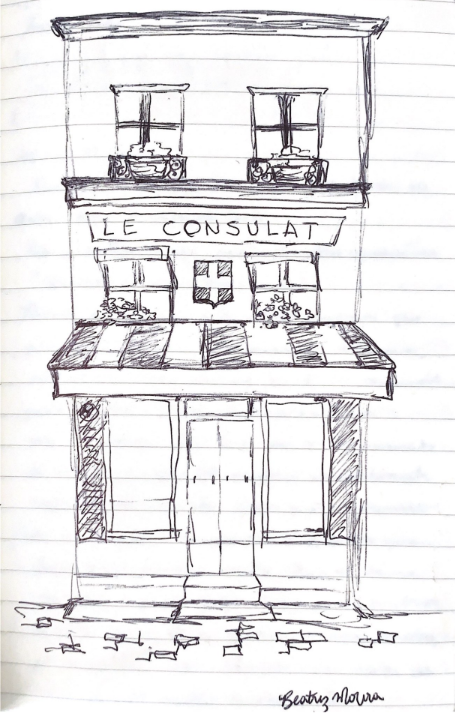 LE CONSULAT
Beatriz Moura